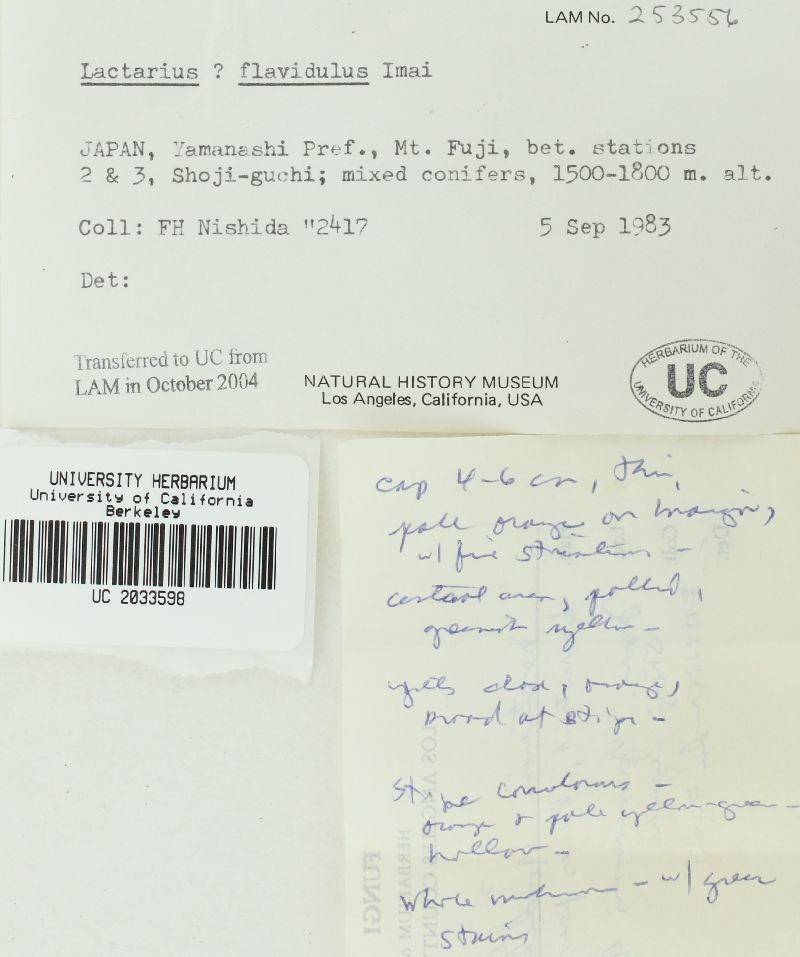 LAM No. 253556
Lactarius ? flavidulus Imai
JAPAN, Yamanashi Pref., Mt. Fuji, bet. stations
2 & 3, Shoji-guchi; mixed conifers, 1500-1800 m. alt.
Coll: FH Nishida "2417 5 Sep 1983
Det:
Transferred to UC from
LAM in October 2004
NATURAL HISTORY MUSEUM
Los Angeles, California, USA
HERBARIUM OF THE
UC
UNIVERSITY OF CALIFORNIA
UNIVERSITY HERBARIUM
University of California
Berkeley
UC 2033598
cap 4-6 cm, thin,
pale orange on margin,
w/ fine striations -
central area, pallid,
greenish yellow -
gills close, orange,
broad at stipe -
stipe concolorous -
orange & pale yellow-green -
hollow -
whole mushroom - w/ green
stains
FUNGI
HERBARIUM
LOS ANGELES COUNTY